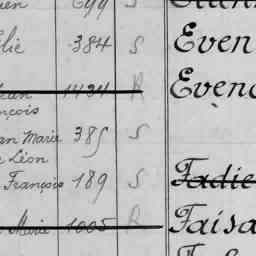 699 S
lie 384 S Even
Jean 1434 R Evenc
nçois
an Marie 385 S
Léon
François 189 S Fadie
Marie 1005 R Faisa